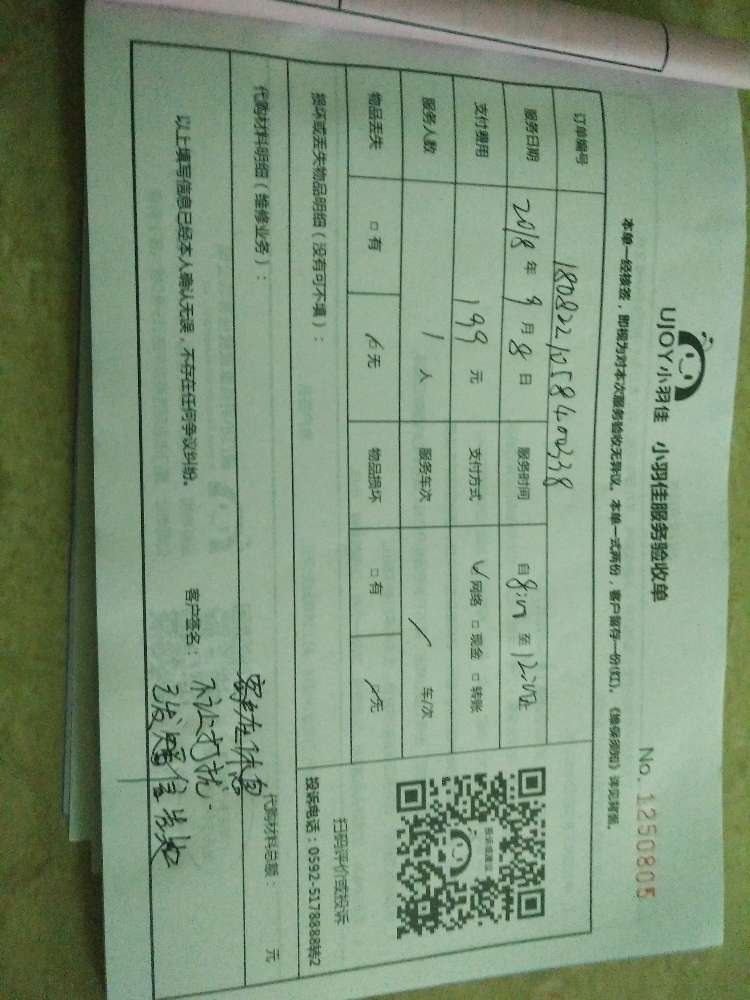 UJOY小羽佳 小羽佳服务验收单
No. 1250805
本单一经核签，即视为对本次服务验收无异议。本单一式两份，客户留存一份(红)。《维保须知》详见背面。
订单编号 1808221058400338
服务日期 2018年9月8日 服务时间 自8:00至12:00止
支付费用 199元 支付方式 ✓网络 □现金 □转账
服务人数 1人 服务车次 / 车/次
物品丢失 □有 ✓无 物品损坏 □有 ✓无
扫码评价或投诉
投诉电话：0592-5178888转2
损坏或丢失物品明细（没有可不填）：
代购材料明细（维修业务）：
代购材料总额： 元
以上填写信息已经本人确认无误，不存在任何争议纠纷。
客户签名：
客户在休息
不让打扰.
已发短信告知